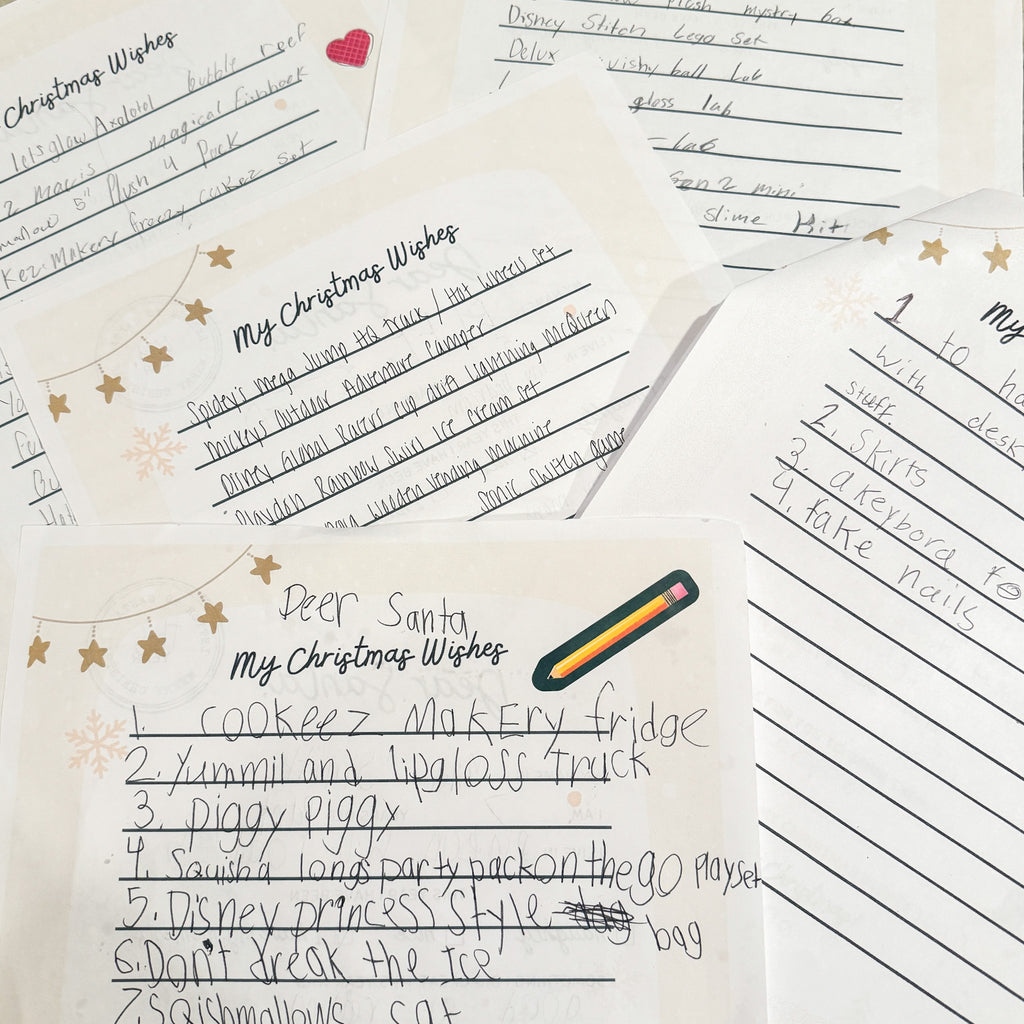 My Christmas Wishes
letsglow Axolotl bubble reef
magical Fishbook
5" Plush 4 Pack
Makery freezy cakez set
plush mystery box
Disney Stitch Lego Set
Delux ball Lab
gloss lab
Lab
Gen 2 mini
slime Kit
My Christmas Wishes
Spidey's Mega Jump HQ Truck / Hot Wheels Set
Mickeys Outdoor Adventure Camper
Disney Global Racers Cup drift Lightning McQueen
Playdoh Rainbow Swirl Ice Cream Set
Wooden vending machine
Sonic Switch game
My
1 to
with desk
stuff.
2. Skirts
3. a keybord
4. fake nails
Deer Santa
My Christmas Wishes
1. COOKEEZ MAKERY fridge
2. Yummil and lipgloss truck
3. Piggy Piggy
4. Squish'a longs party pack on the go playset
5. Disney princess style bag
6. Don't dreak the Ice
7. Sqishmallows cat